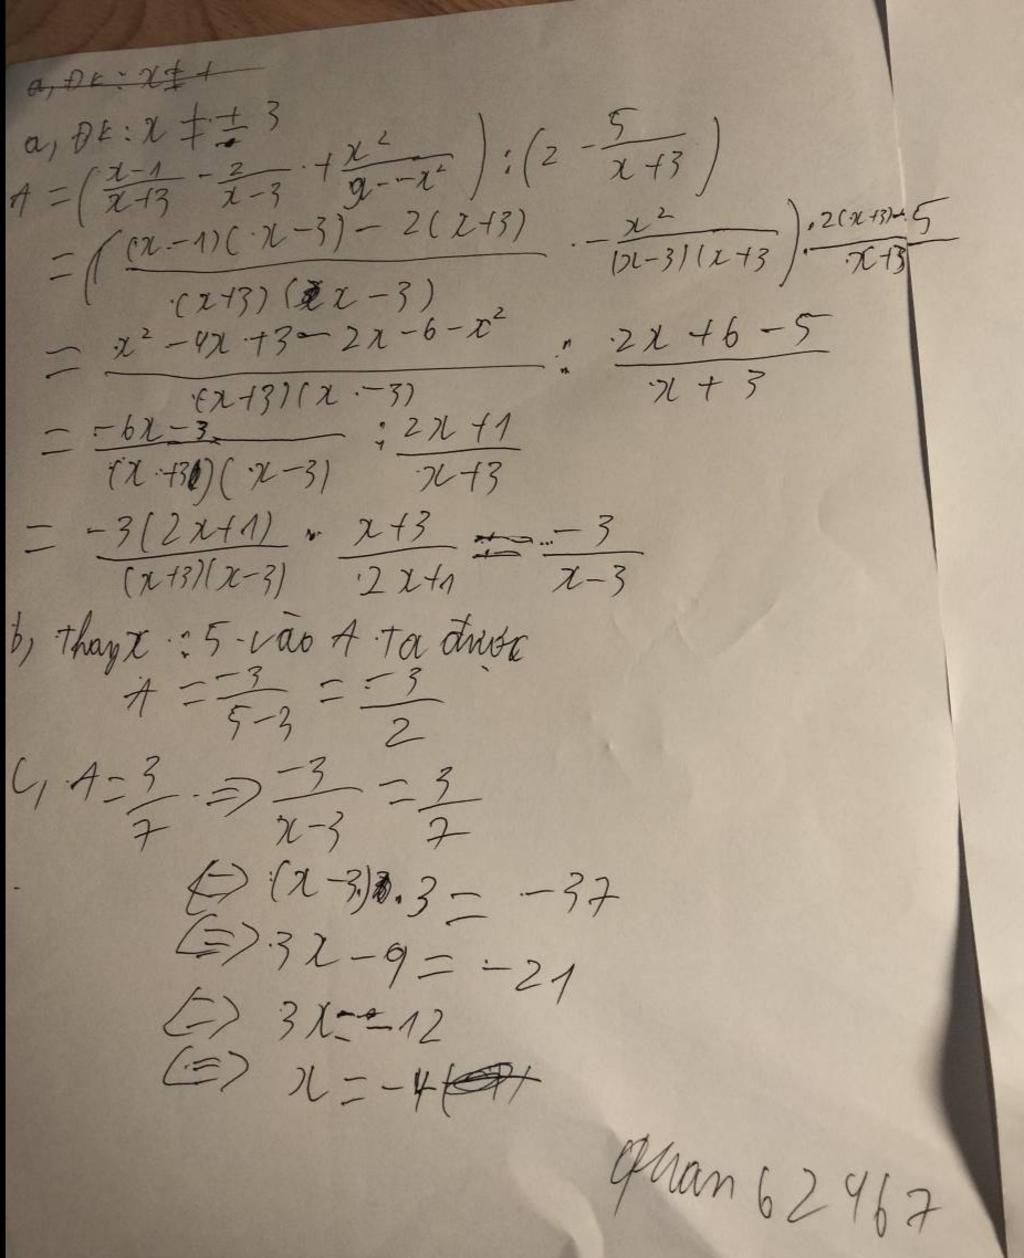 a, ĐK: x ≠ 1
a, ĐK: x ≠ ± 3
A = ( (x-1)/(x+3) - 2/(x-3) + x²/(9-x²) ) : ( 2 - 5/(x+3) )
= ( ((x-1)(x-3) - 2(x+3))/((x+3)(x-3)) - x²/((x-3)(x+3) ) : (2(x+3)-5)/(x+3)
= (x² - 4x + 3 - 2x - 6 - x²)/((x+3)(x-3)) : (2x + 6 - 5)/(x + 3)
= (-6x-3)/((x+3)(x-3)) : (2x+1)/(x+3)
= (-3(2x+1))/((x+3)(x-3)) . (x+3)/(2x+1) = (-3)/(x-3)
b, thay x : 5 vào A ta được
A = (-3)/(5-3) = (-3)/2
C, A = 3/7 => (-3)/(x-3) = 3/7
<=> (x-3).3 = -37
<=> 3x - 9 = -21
<=> 3x = -12
<=> x = -4
quan62467